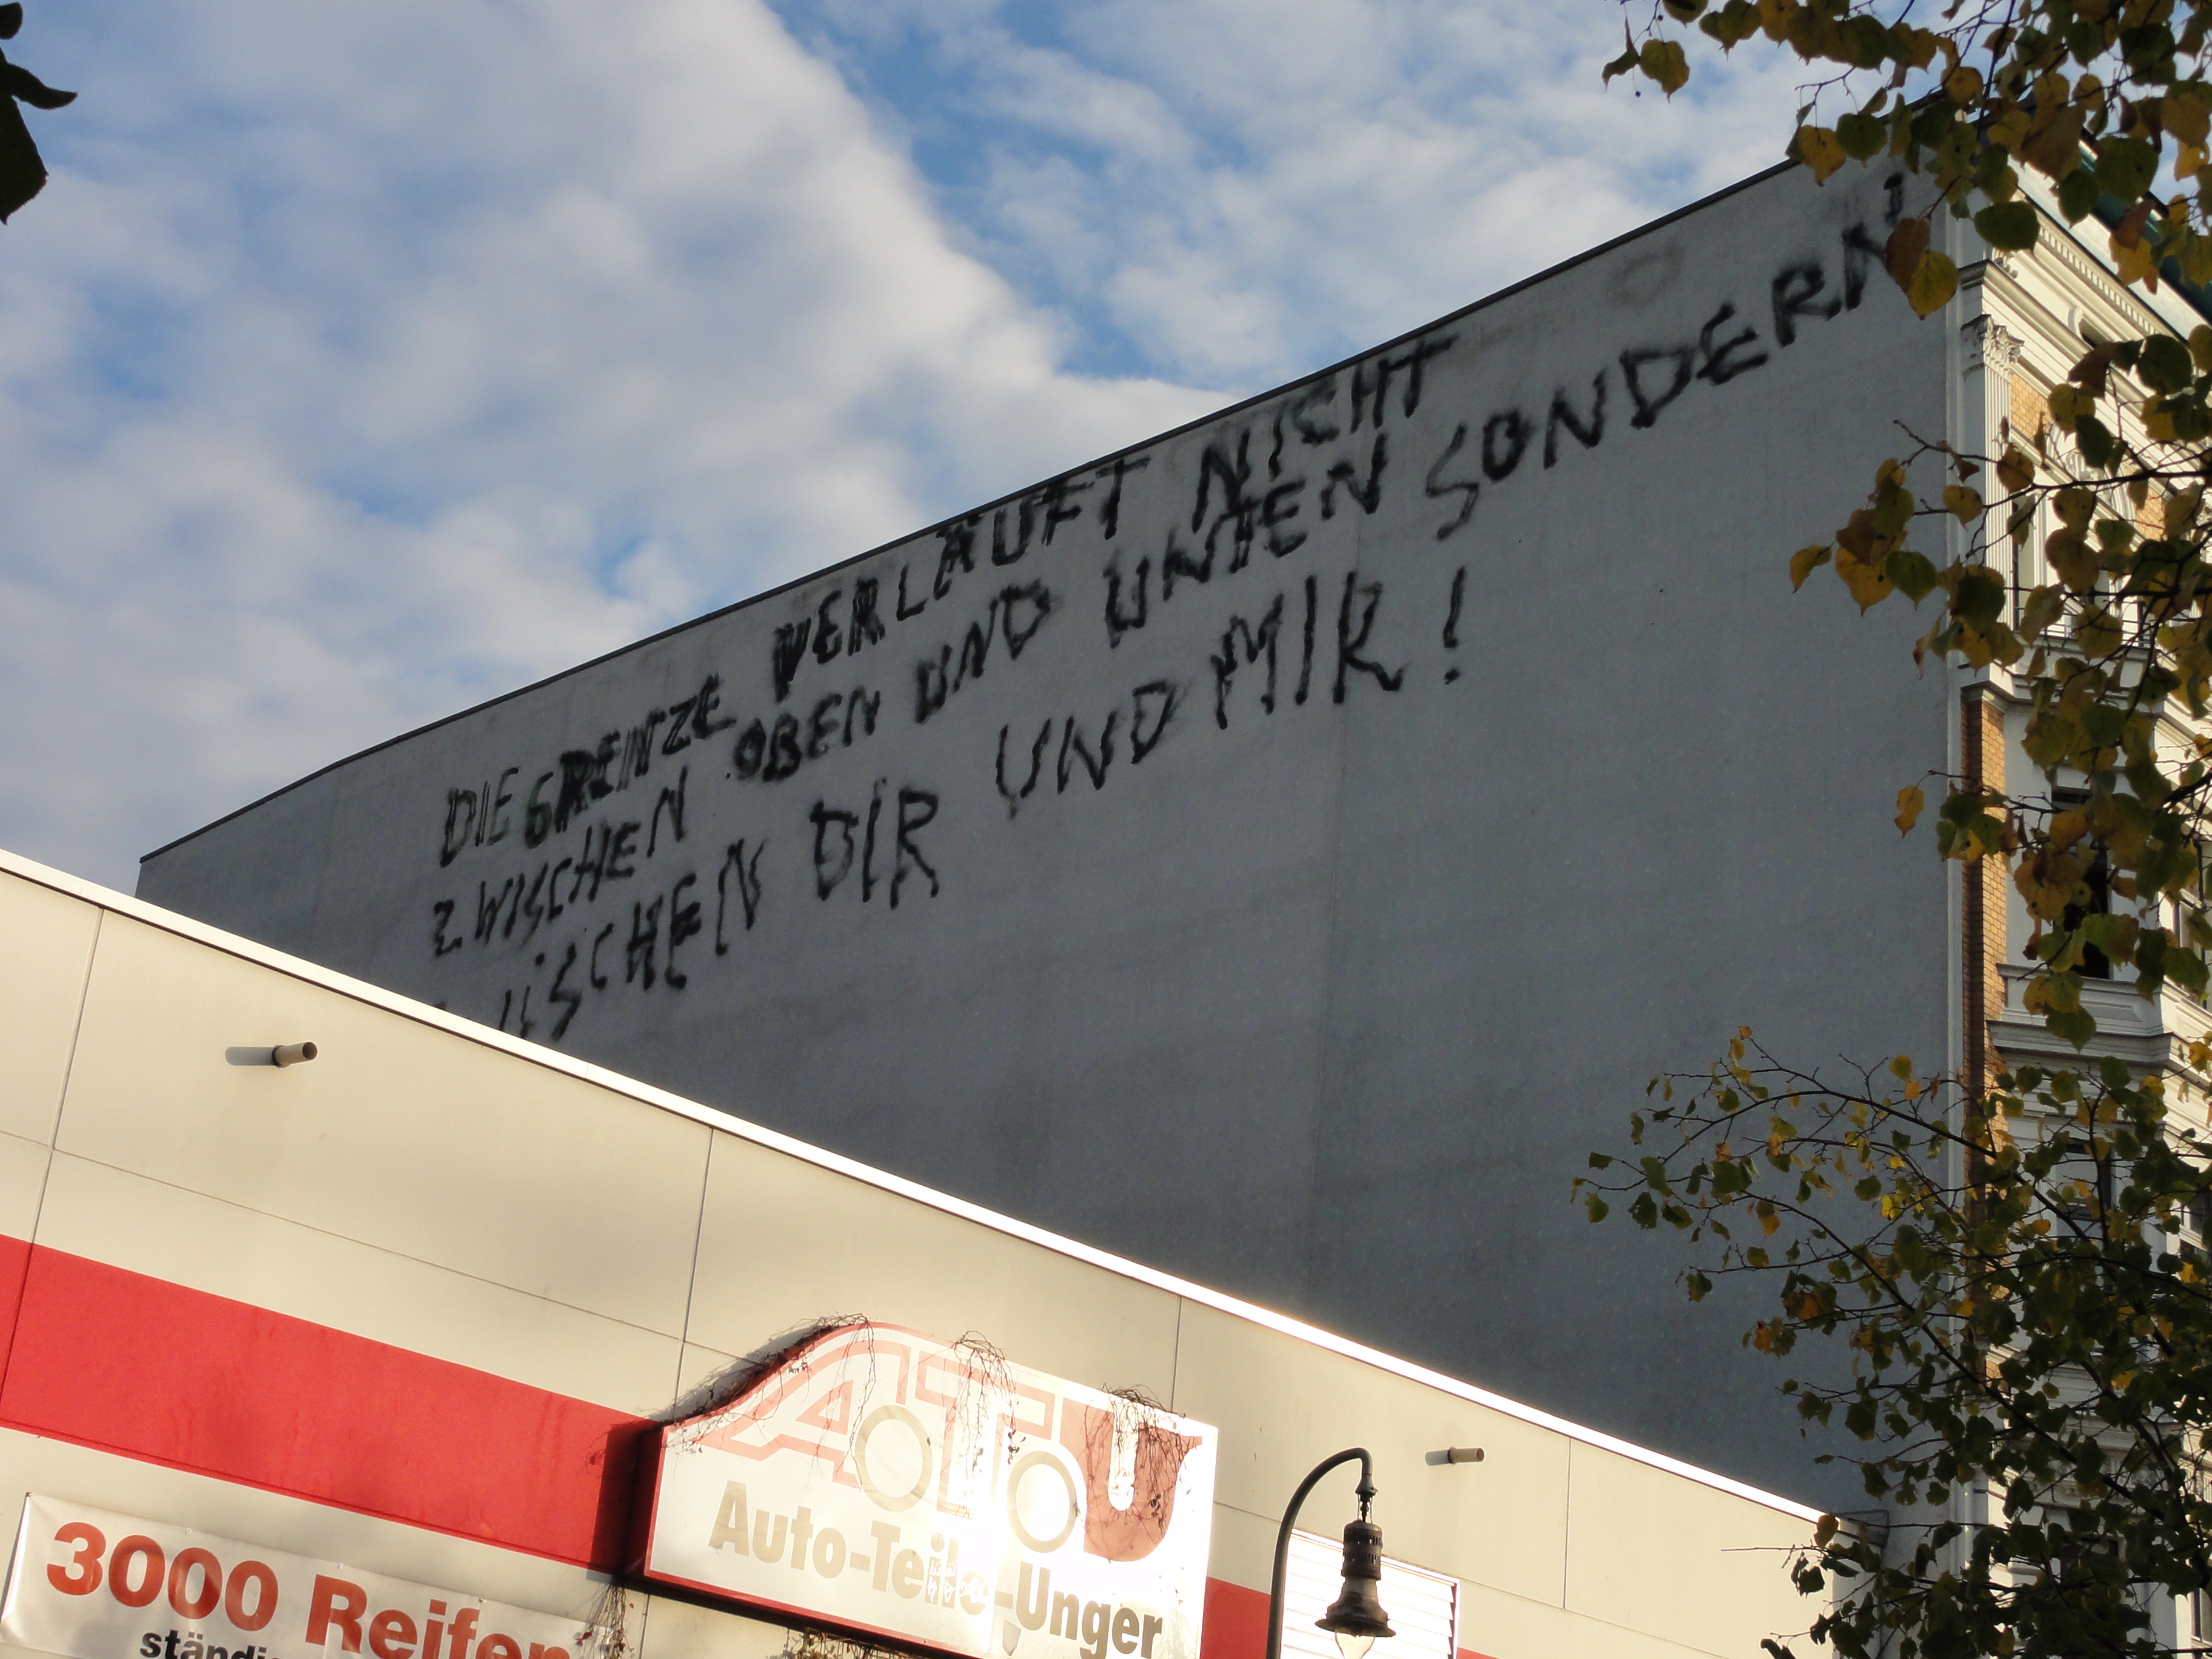 DIE GRENZE VERLÄUFT NICHT
ZWISCHEN OBEN UND UNTEN SONDERN
ISCHEN DIR UND MIR!
ATU
Auto-Teile-Unger
3000 Reifen
ständi